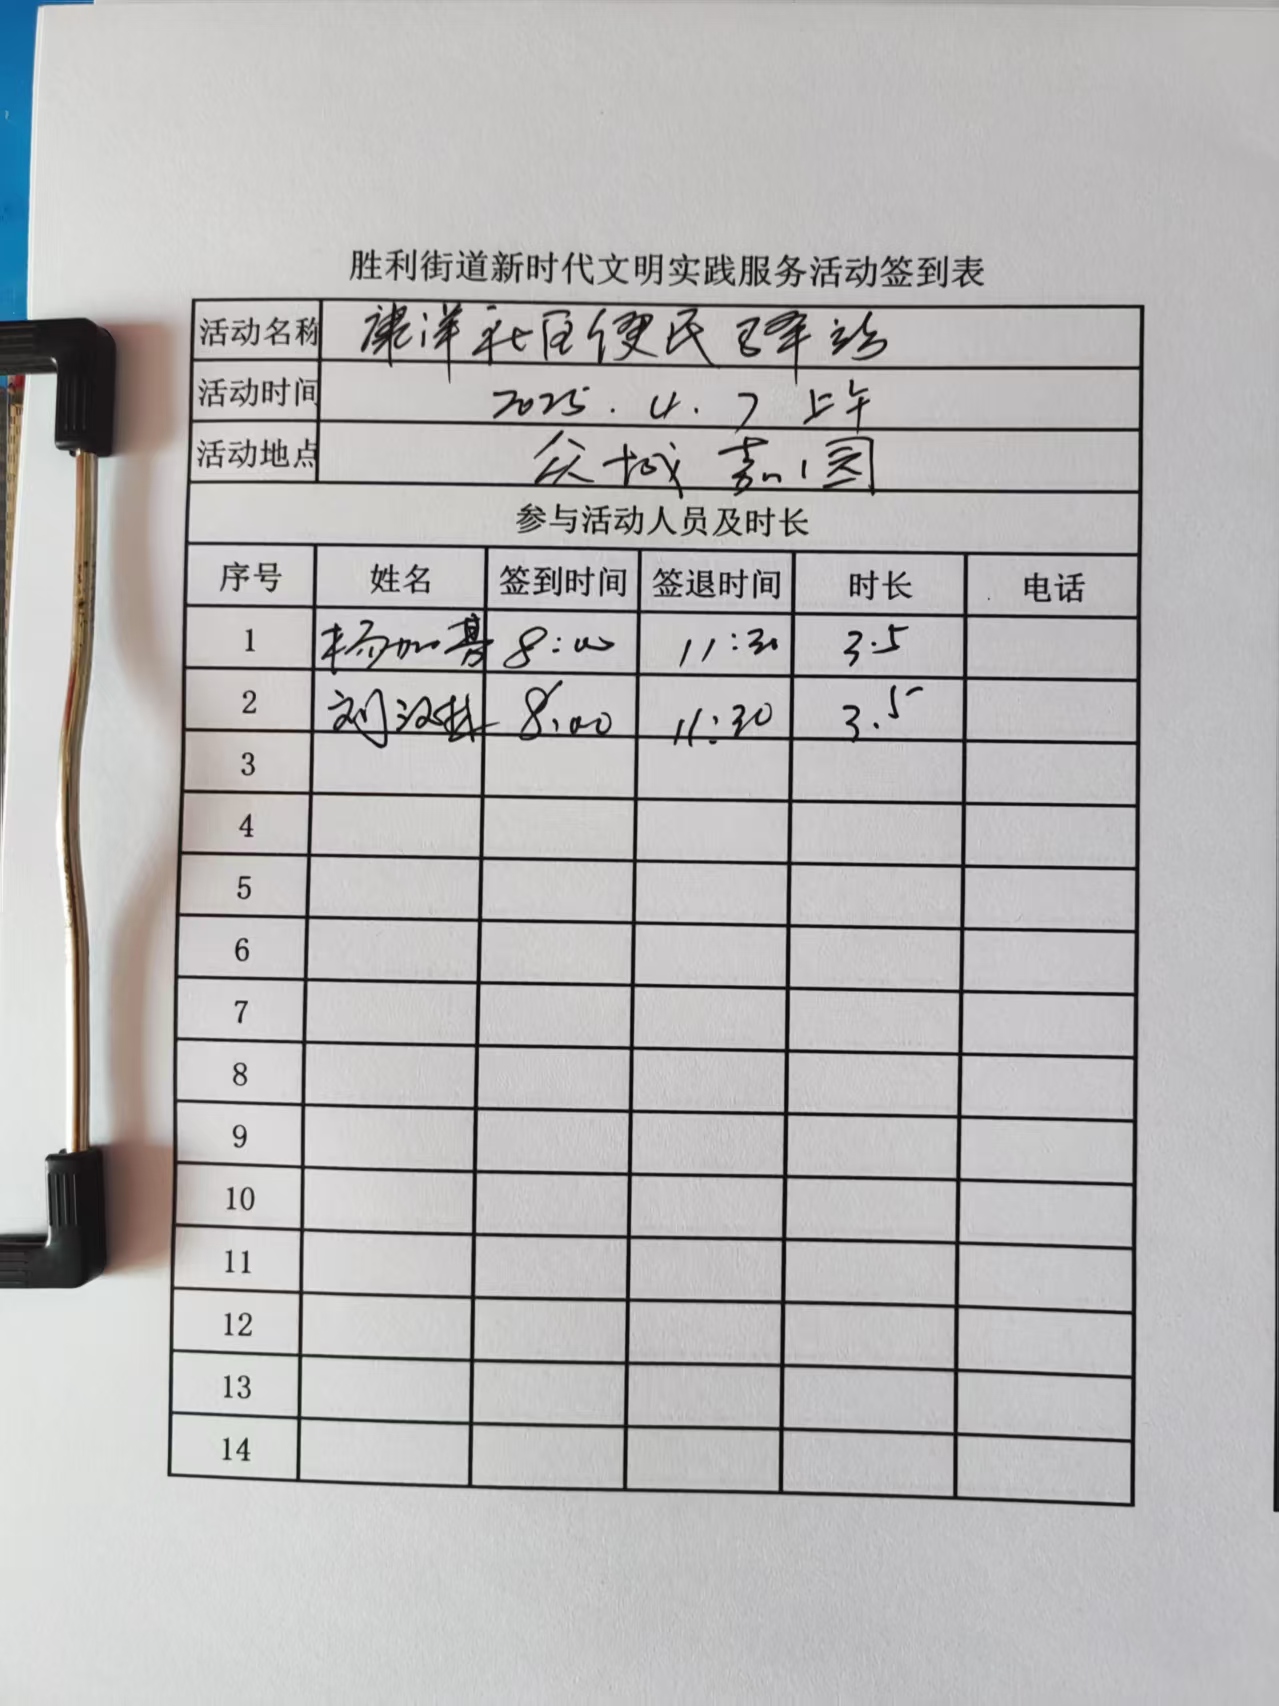 胜利街道新时代文明实践服务活动签到表
活动名称 康洋社区便民驿站
活动时间 2025.4.7上午
活动地点 众城嘉园
参与活动人员及时长
序号 姓名 签到时间 签退时间 时长 电话
1 杨加 8:00 11:30 3.5
2 刘汉林 8:00 11:30 3.5
3
4
5
6
7
8
9
10
11
12
13
14